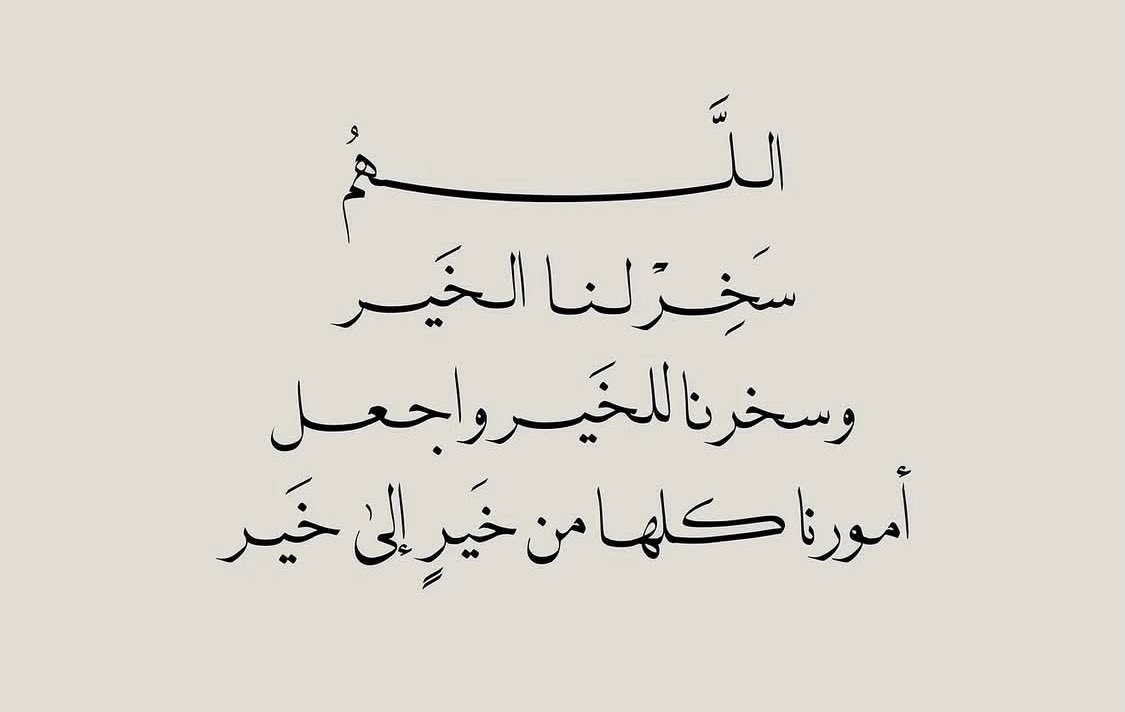 اللَّهمُ
سَخِرْ لنا الخَير
وسخرنا للخَير واجعل
أمورنا كلها من خَيرٍ إلىٰ خَير